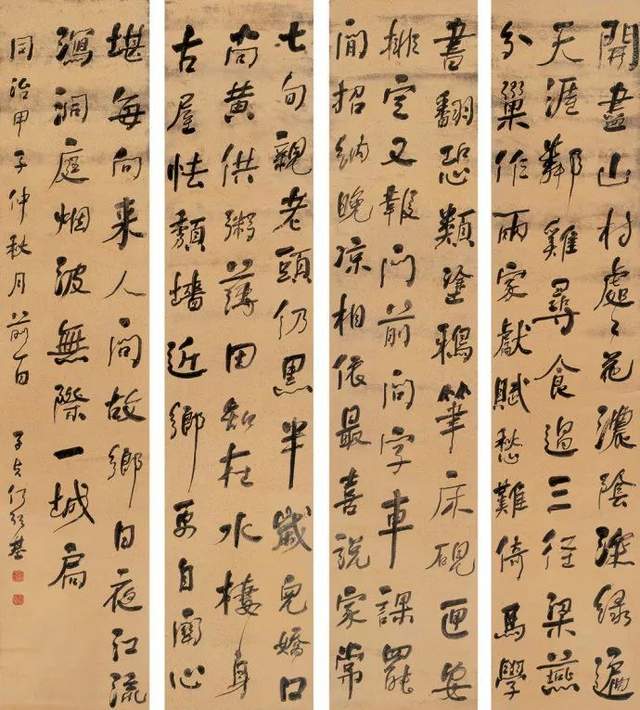 開盡山村處々花濃陰深綠遍
天涯鄰雞尋食過三徑梁燕
分巢作兩家獻賦愁難倚馬學
書翻恐類塗鴉筆床硯匣安
排定又報門前問字車課罷
閒招納晚涼相依最喜說家常
七旬親老頭仍黑半歲兒嬌口
尚黃供粥薄田知在水棲身
古屋怯頹墻近鄉更自關心
堪每向來人問故鄉日夜江流
瀉洞庭烟波無際一城扃
同治甲子仲秋月前
子貞何紹基